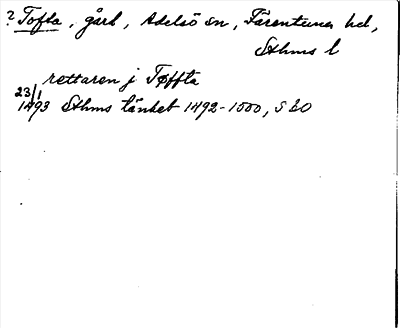 ? Tofta, gård, Adelsö sn, Färentuna hd,
Sthms l
rettaren j Tøffta
23/1
1493 Sthms tänkeb 1492-1500, s 60